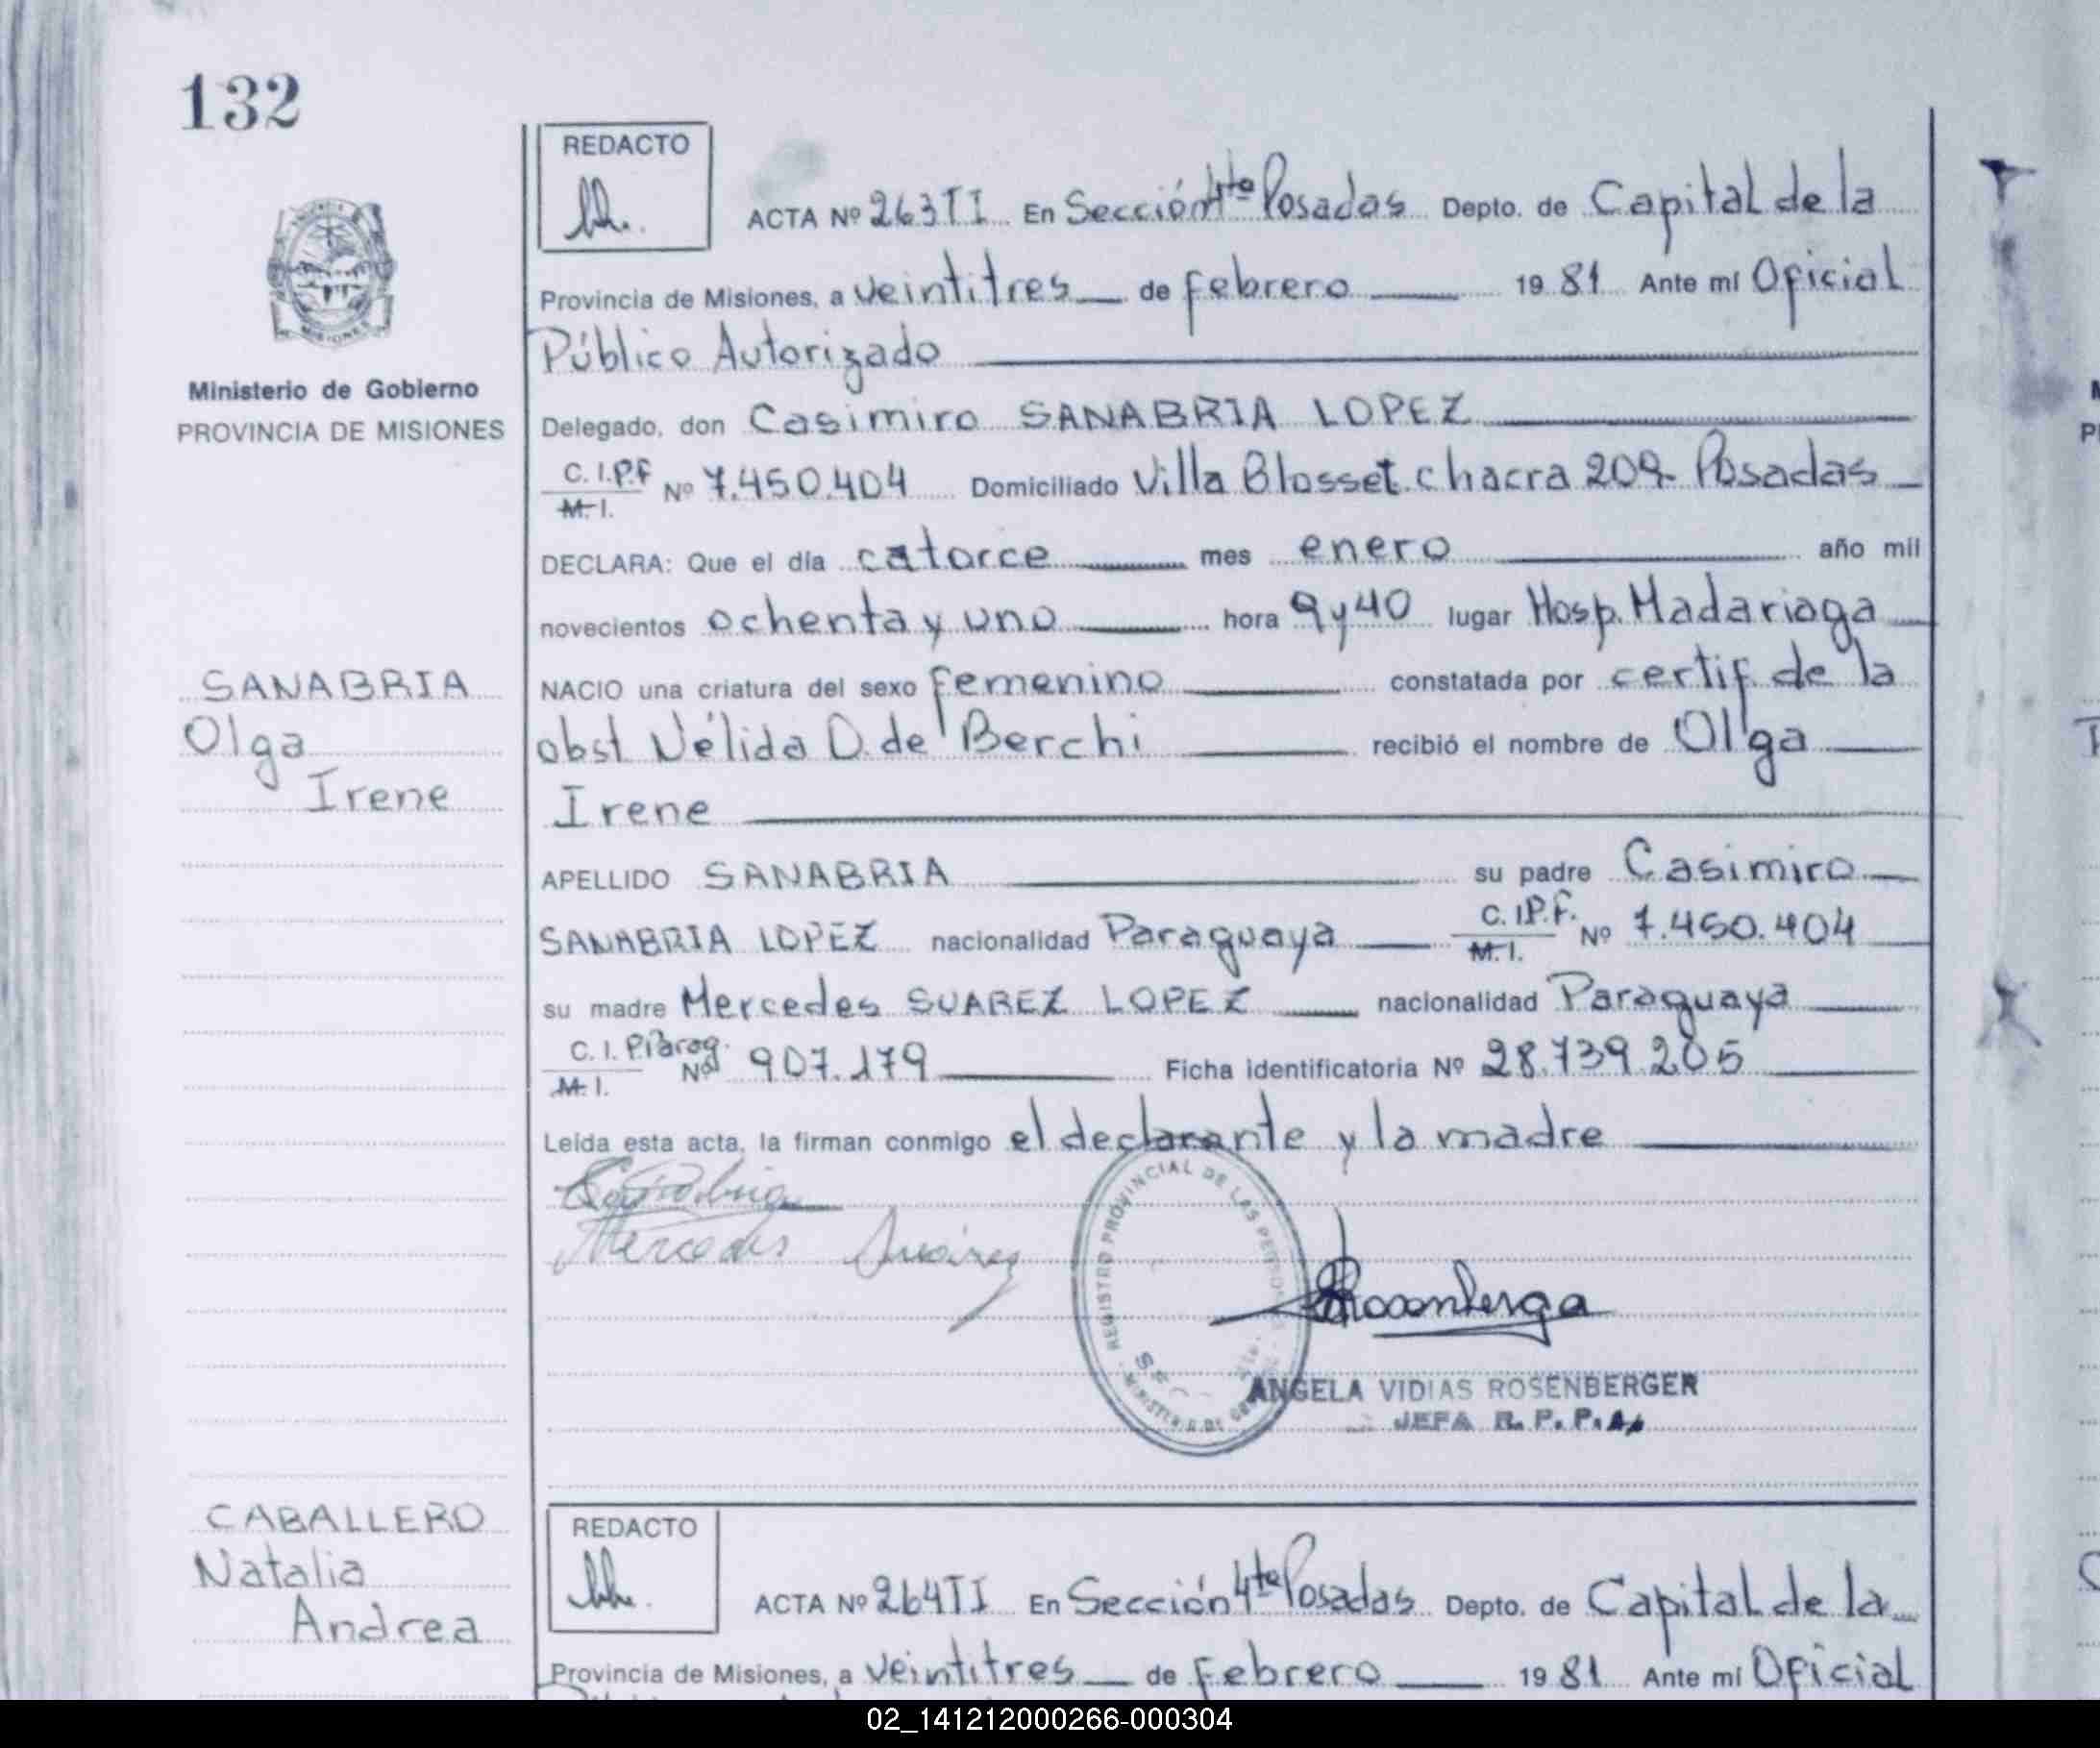 132
REDACTO
ACTA Nº 263 TI En Sección 4ta Posadas Depto. de Capital de la
Provincia de Misiones, a veintitres de febrero 1981 Ante mí Oficial
Público Autorizado
Ministerio de Gobierno
PROVINCIA DE MISIONES
Delegado, don Casimiro SANABRIA LOPEZ
C. I. P.F Nº 7.450.404 Domiciliado Villa Blosset. chacra 209- Posadas
M. I.
DECLARA: Que el día catorce mes enero año mil
novecientos ochenta y uno hora 9 y 40 lugar Hosp. Madariaga
SANABRIA
Olga
Irene
NACIO una criatura del sexo femenino constatada por certif de la
obst Nélida D. de Berchi recibió el nombre de Olga
Irene
APELLIDO SANABRIA su padre Casimiro
SANABRIA LOPEZ nacionalidad Paraguaya C. I. P.F. Nº 7.450.404
M. I.
su madre Mercedes SUAREZ LOPEZ nacionalidad Paraguaya
C. I. Parag. Nº 907.179 Ficha identificatoria Nº 28.739.205
M. I.
Leída esta acta, la firman conmigo el declarante y la madre
Mercedes Suárez
REGISTRO PROVINCIAL DE LAS
MINISTERIO DE
ANGELA VIDIAS ROSENBERGER
JEFA R. P. P.
CABALLERO
Natalia
Andrea
REDACTO
ACTA Nº 264 TI En Sección 4ta Posadas Depto. de Capital de la
Provincia de Misiones, a veintitres de Febrero 1981 Ante mí Oficial
02_141212000266-000304